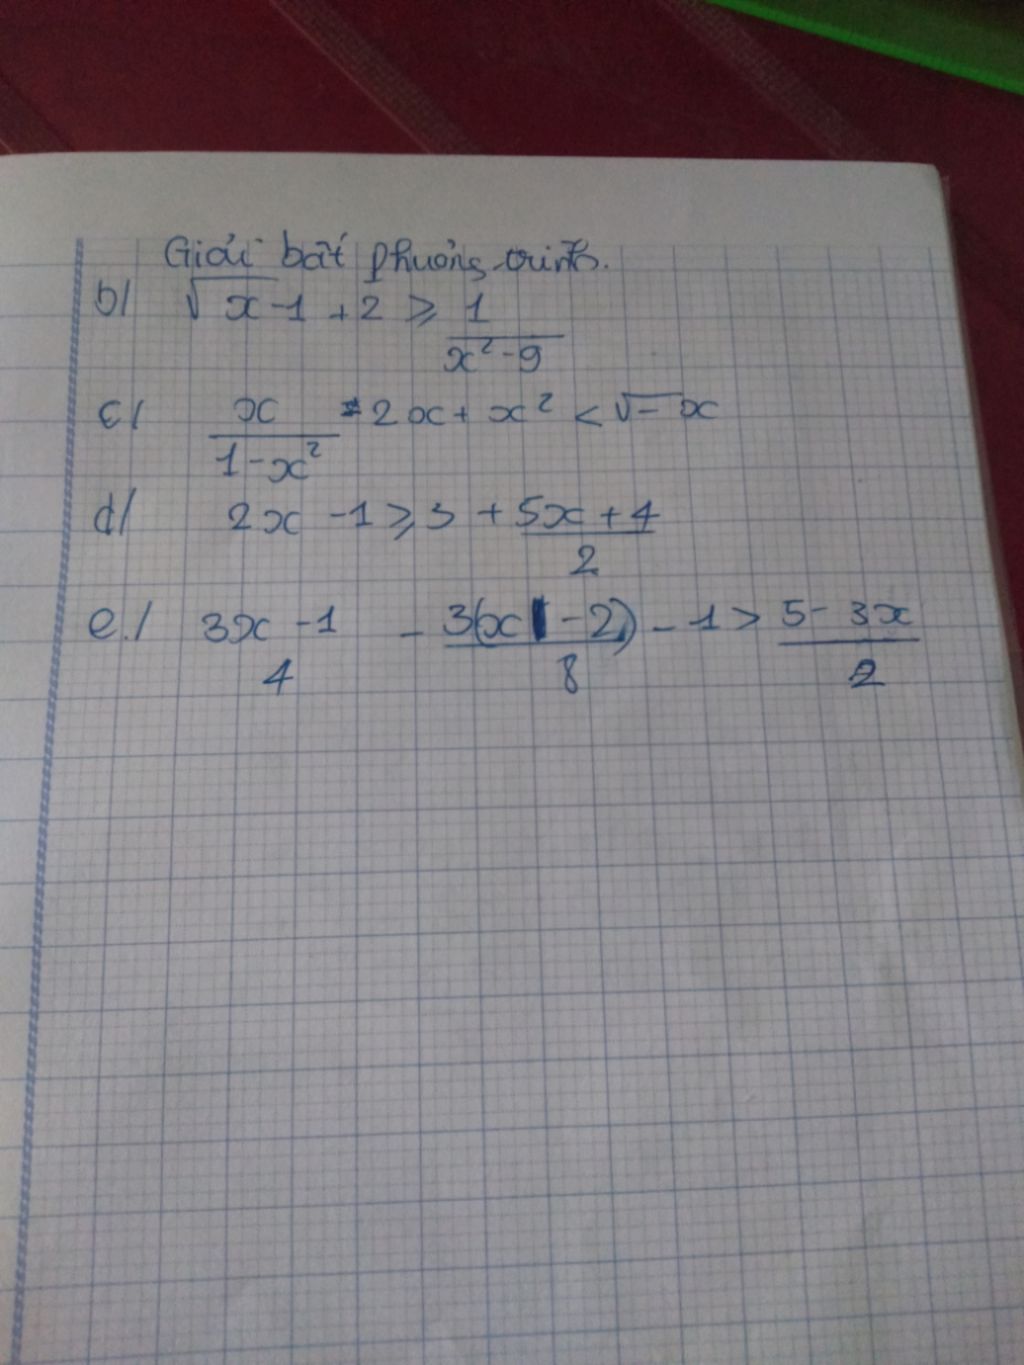 Giải bất phương trình.
b/ √x-1 + 2 ≥ 1/(x²-9)
c/ x/(1-x²) - 2x + x² < √-x
d/ 2x - 1 ≥ 3 + (5x+4)/2
e./ (3x-1)/4 - 3(x-2)/8 - 1 > (5-3x)/2